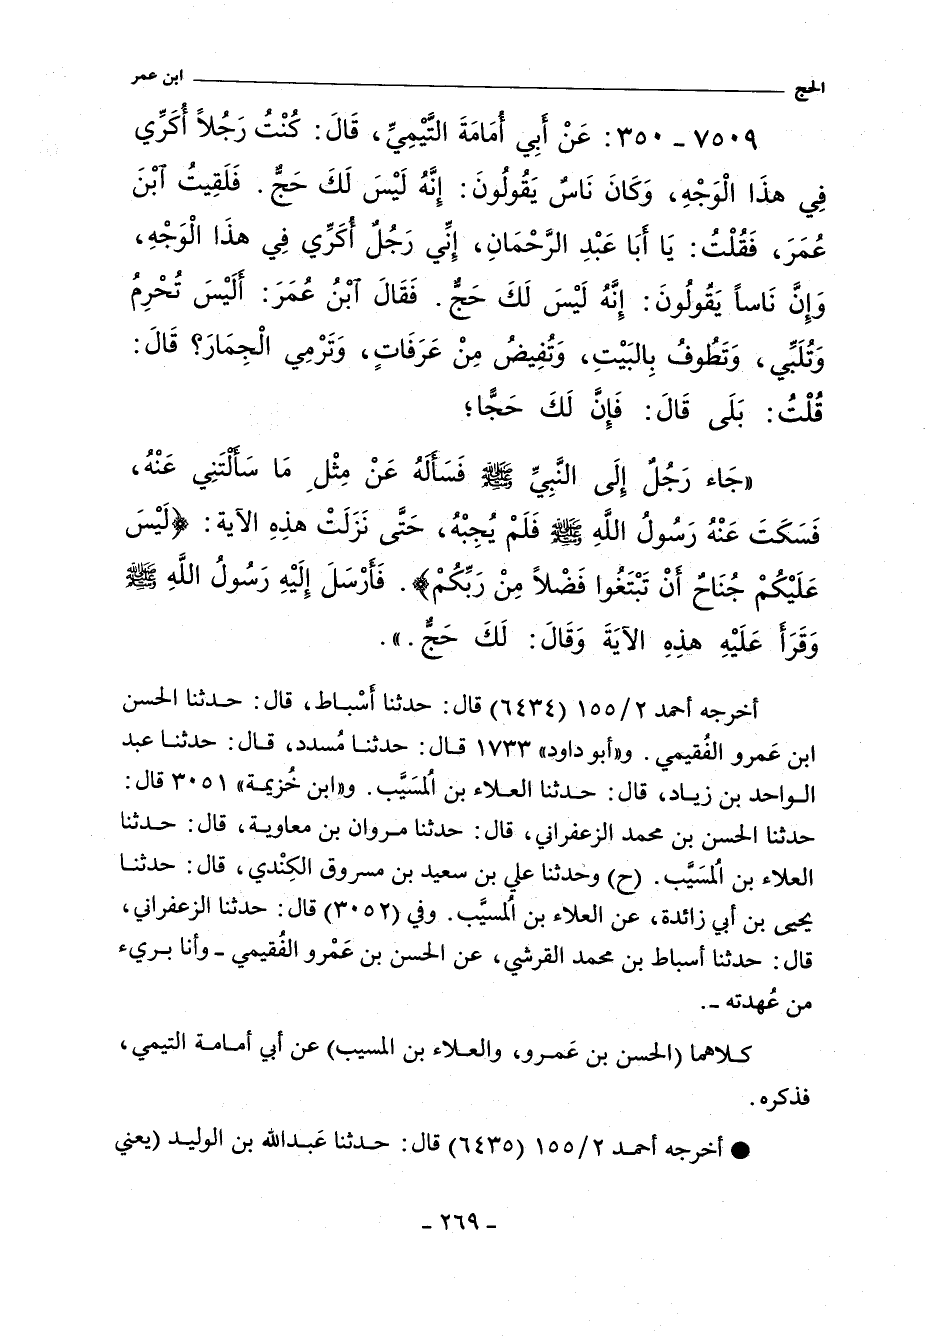 الحج ابن عمر
٧٥٠٩ ـ ٣٥٠: عَنْ أَبِي أُمَامَةَ التَّيْمِيِّ، قَالَ: كُنْتُ رَجُلاً أُكَرِّي
فِي هذَا الْوَجْهِ، وَكَانَ نَاسٌ يَقُولُونَ: إِنَّهُ لَيْسَ لَكَ حَجٌّ. فَلَقِيتُ ٱبْنَ
عُمَرَ، فَقُلْتُ: يَا أَبَا عَبْدِ الرَّحْمَانِ، إِنِّي رَجُلٌ أُكَرِّي فِي هذَا الْوَجْهِ،
وَإِنَّ نَاساً يَقُولُونَ: إِنَّهُ لَيْسَ لَكَ حَجٌّ. فَقَالَ ٱبْنُ عُمَرَ: أَلَيْسَ تُحْرِمُ
وَتُلَبِّي، وَتَطُوفُ بِالبَيْتِ، وَتُفِيضُ مِنْ عَرَفَاتٍ، وَتَرْمِي الْجِمَارَ؟ قَالَ:
قُلْتُ: بَلَى قَالَ: فَإِنَّ لَكَ حَجًّا؛
«جَاء رَجُلٌ إِلَى النَّبِيِّ ﷺ فَسَأَلَهُ عَنْ مِثْلِ مَا سَأَلْتَنِي عَنْهُ،
فَسَكَتَ عَنْهُ رَسُولُ اللَّهِ ﷺ فَلَمْ يُجِبْهُ، حَتَّى نَزَلَتْ هذِهِ الآية: ﴿لَيْسَ
عَلَيْكُمْ جُنَاحٌ أَنْ تَبْتَغُوا فَضْلاً مِنْ رَبِّكُمْ﴾. فَأَرْسَلَ إِلَيْهِ رَسُولُ اللَّهِ ﷺ
وَقَرَأَ عَلَيْهِ هذِهِ الآيَةَ وَقَالَ: لَكَ حَجٌّ.».
أخرجه أحمد ١٥٥/٢ (٦٤٣٤) قال: حدثنا أَسْباط، قال: حدثنا الحسن
ابن عَمرو الفُقيمي. و«أبو داود» ١٧٣٣ قال: حدثنا مُسدد، قال: حدثنا عبد
الواحد بن زياد، قال: حدثنا العلاء بن المُسَيَّب. و«ابن خُزيمة» ٣٠٥١ قال:
حدثنا الحسن بن محمد الزعفراني، قال: حدثنا مروان بن معاوية، قال: حدثنا
العلاء بن المُسَيَّب. (ح) وحدثنا علي بن سعيد بن مسروق الكِنْدي، قال: حدثنا
يحيى بن أبي زائدة، عن العلاء بن المُسيَّب. وفي (٣٠٥٢) قال: حدثنا الزعفراني،
قال: حدثنا أسباط بن محمد القرشي، عن الحسن بن عَمْرو الفُقيمي ـ وأنا بريء
من عُهدته ـ.
كلاهما (الحسن بن عَمرو، والعلاء بن المسيب) عن أبي أمامة التيمي،
فذكره.
● أخرجه أحمد ١٥٥/٢ (٦٤٣٥) قال: حدثنا عَبدالله بن الوليد (يعني
ـ ٢٦٩ ـ